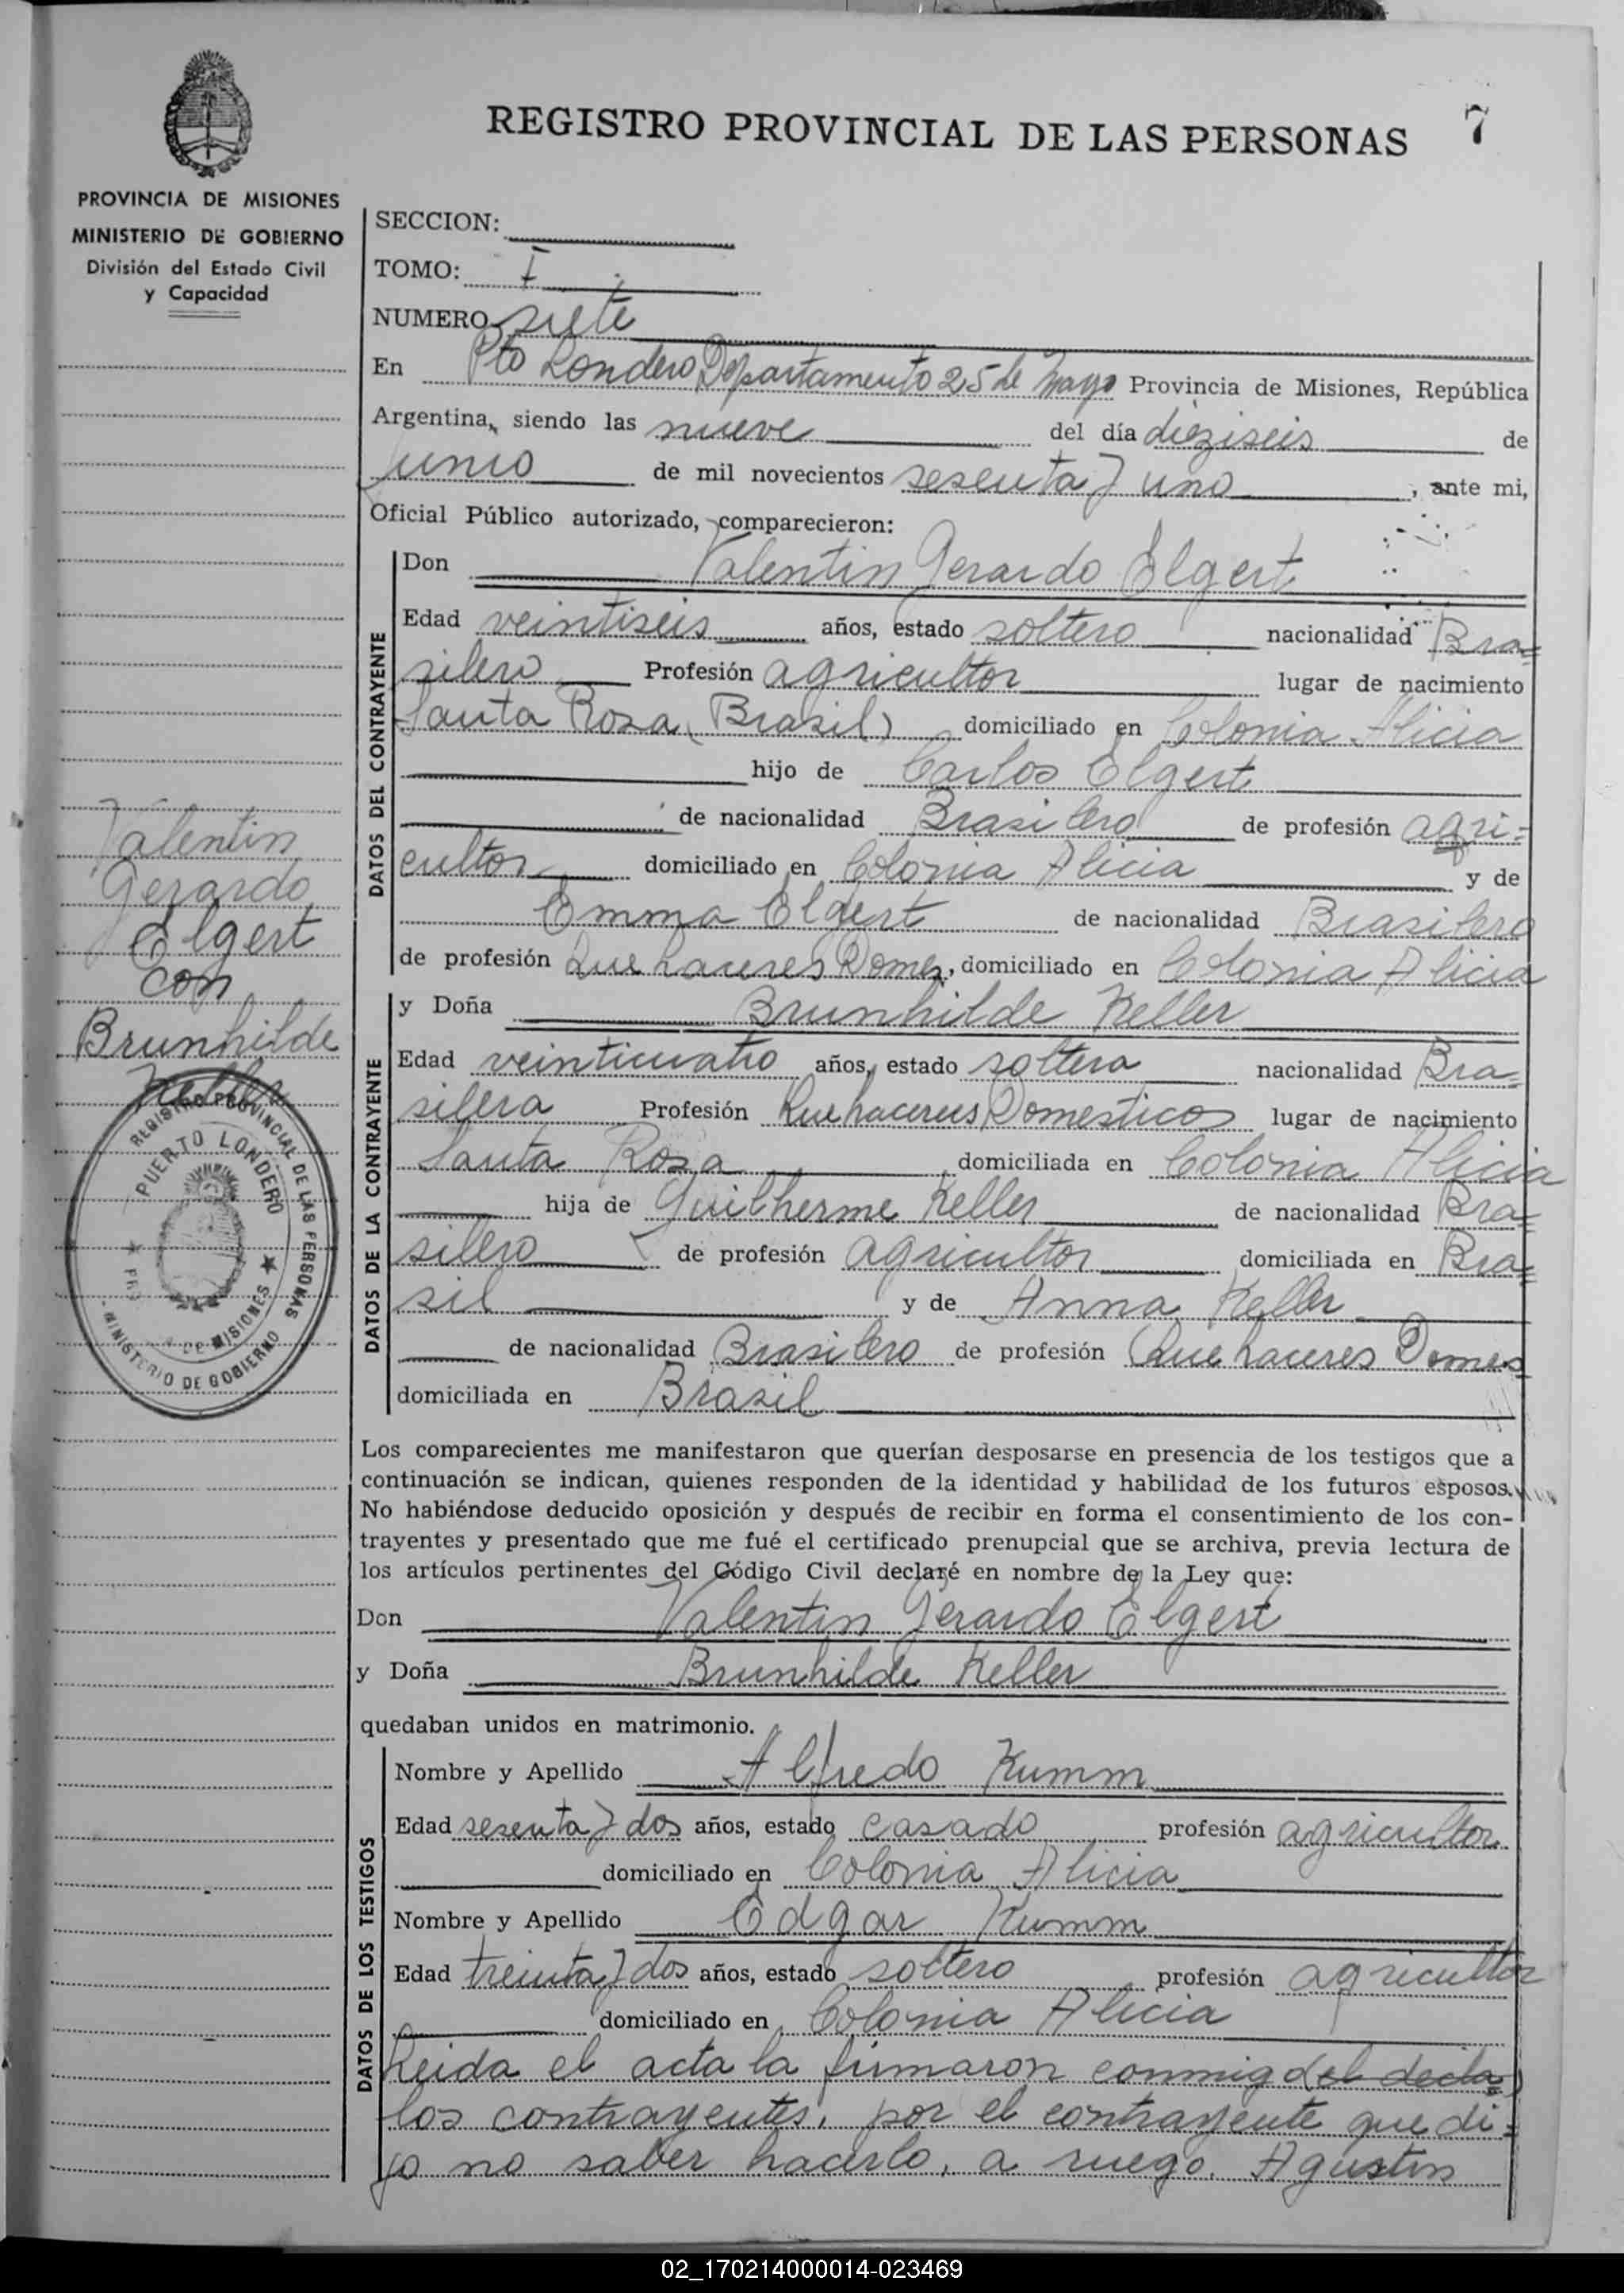 REGISTRO PROVINCIAL DE LAS PERSONAS 7
PROVINCIA DE MISIONES
MINISTERIO DE GOBIERNO
División del Estado Civil
y Capacidad
SECCION:
TOMO: I
NUMERO siete
En Pto Londero Departamento 25 de Mayo Provincia de Misiones, República
Argentina, siendo las nueve del día dieziseis de
junio de mil novecientos sesenta y uno, ante mi,
Oficial Público autorizado, comparecieron:
DATOS DEL CONTRAYENTE
Don Valentin Gerardo Elgert
Edad veintiseis años, estado soltero nacionalidad Bra=
silero Profesión agricultor lugar de nacimiento
Santa Rosa (Brasil) domiciliado en Colonia Alicia
hijo de Carlos Elgert
de nacionalidad Brasilero de profesión agri=
cultor domiciliado en Colonia Alicia y de
Emma Elgert de nacionalidad Brasilero
de profesión Quehaceres Domes, domiciliado en Colonia Alicia
Valentin
Gerardo
Elgert
con
Brunhilde
Keller
REGISTRO PROVINCIAL DE LAS PERSONAS
PUERTO LONDERO
DE MISIONES
MINISTERIO DE GOBIERNO
DATOS DE LA CONTRAYENTE
y Doña Brunhilde Keller
Edad veinticuatro años, estado soltera nacionalidad Bra=
silera Profesión Quehaceres Domesticos lugar de nacimiento
Santa Rosa domiciliada en Colonia Alicia
hija de Guilherme Keller de nacionalidad Bra=
silero de profesión agricultor domiciliada en Bra=
sil y de Anna Keller
de nacionalidad Brasilero de profesión Quehaceres Domes
domiciliada en Brasil
Los comparecientes me manifestaron que querían desposarse en presencia de los testigos que a
continuación se indican, quienes responden de la identidad y habilidad de los futuros esposos.
No habiéndose deducido oposición y después de recibir en forma el consentimiento de los con-
trayentes y presentado que me fué el certificado prenupcial que se archiva, previa lectura de
los artículos pertinentes del Código Civil declaré en nombre de la Ley que:
Don Valentin Gerardo Elgert
y Doña Brunhilde Keller
quedaban unidos en matrimonio.
DATOS DE LOS TESTIGOS
Nombre y Apellido Alfredo Kumm
Edad sesenta y dos años, estado casado profesión agricultor
domiciliado en Colonia Alicia
Nombre y Apellido Edgar Kumm
Edad treinta y dos años, estado soltero profesión agricultor
domiciliado en Colonia Alicia
Leida el acta la firmaron conmigo (el decla=)
los contrayentes, por el contrayente que di=
jo no saber hacerlo, a ruego, Agustin
02_170214000014-023469